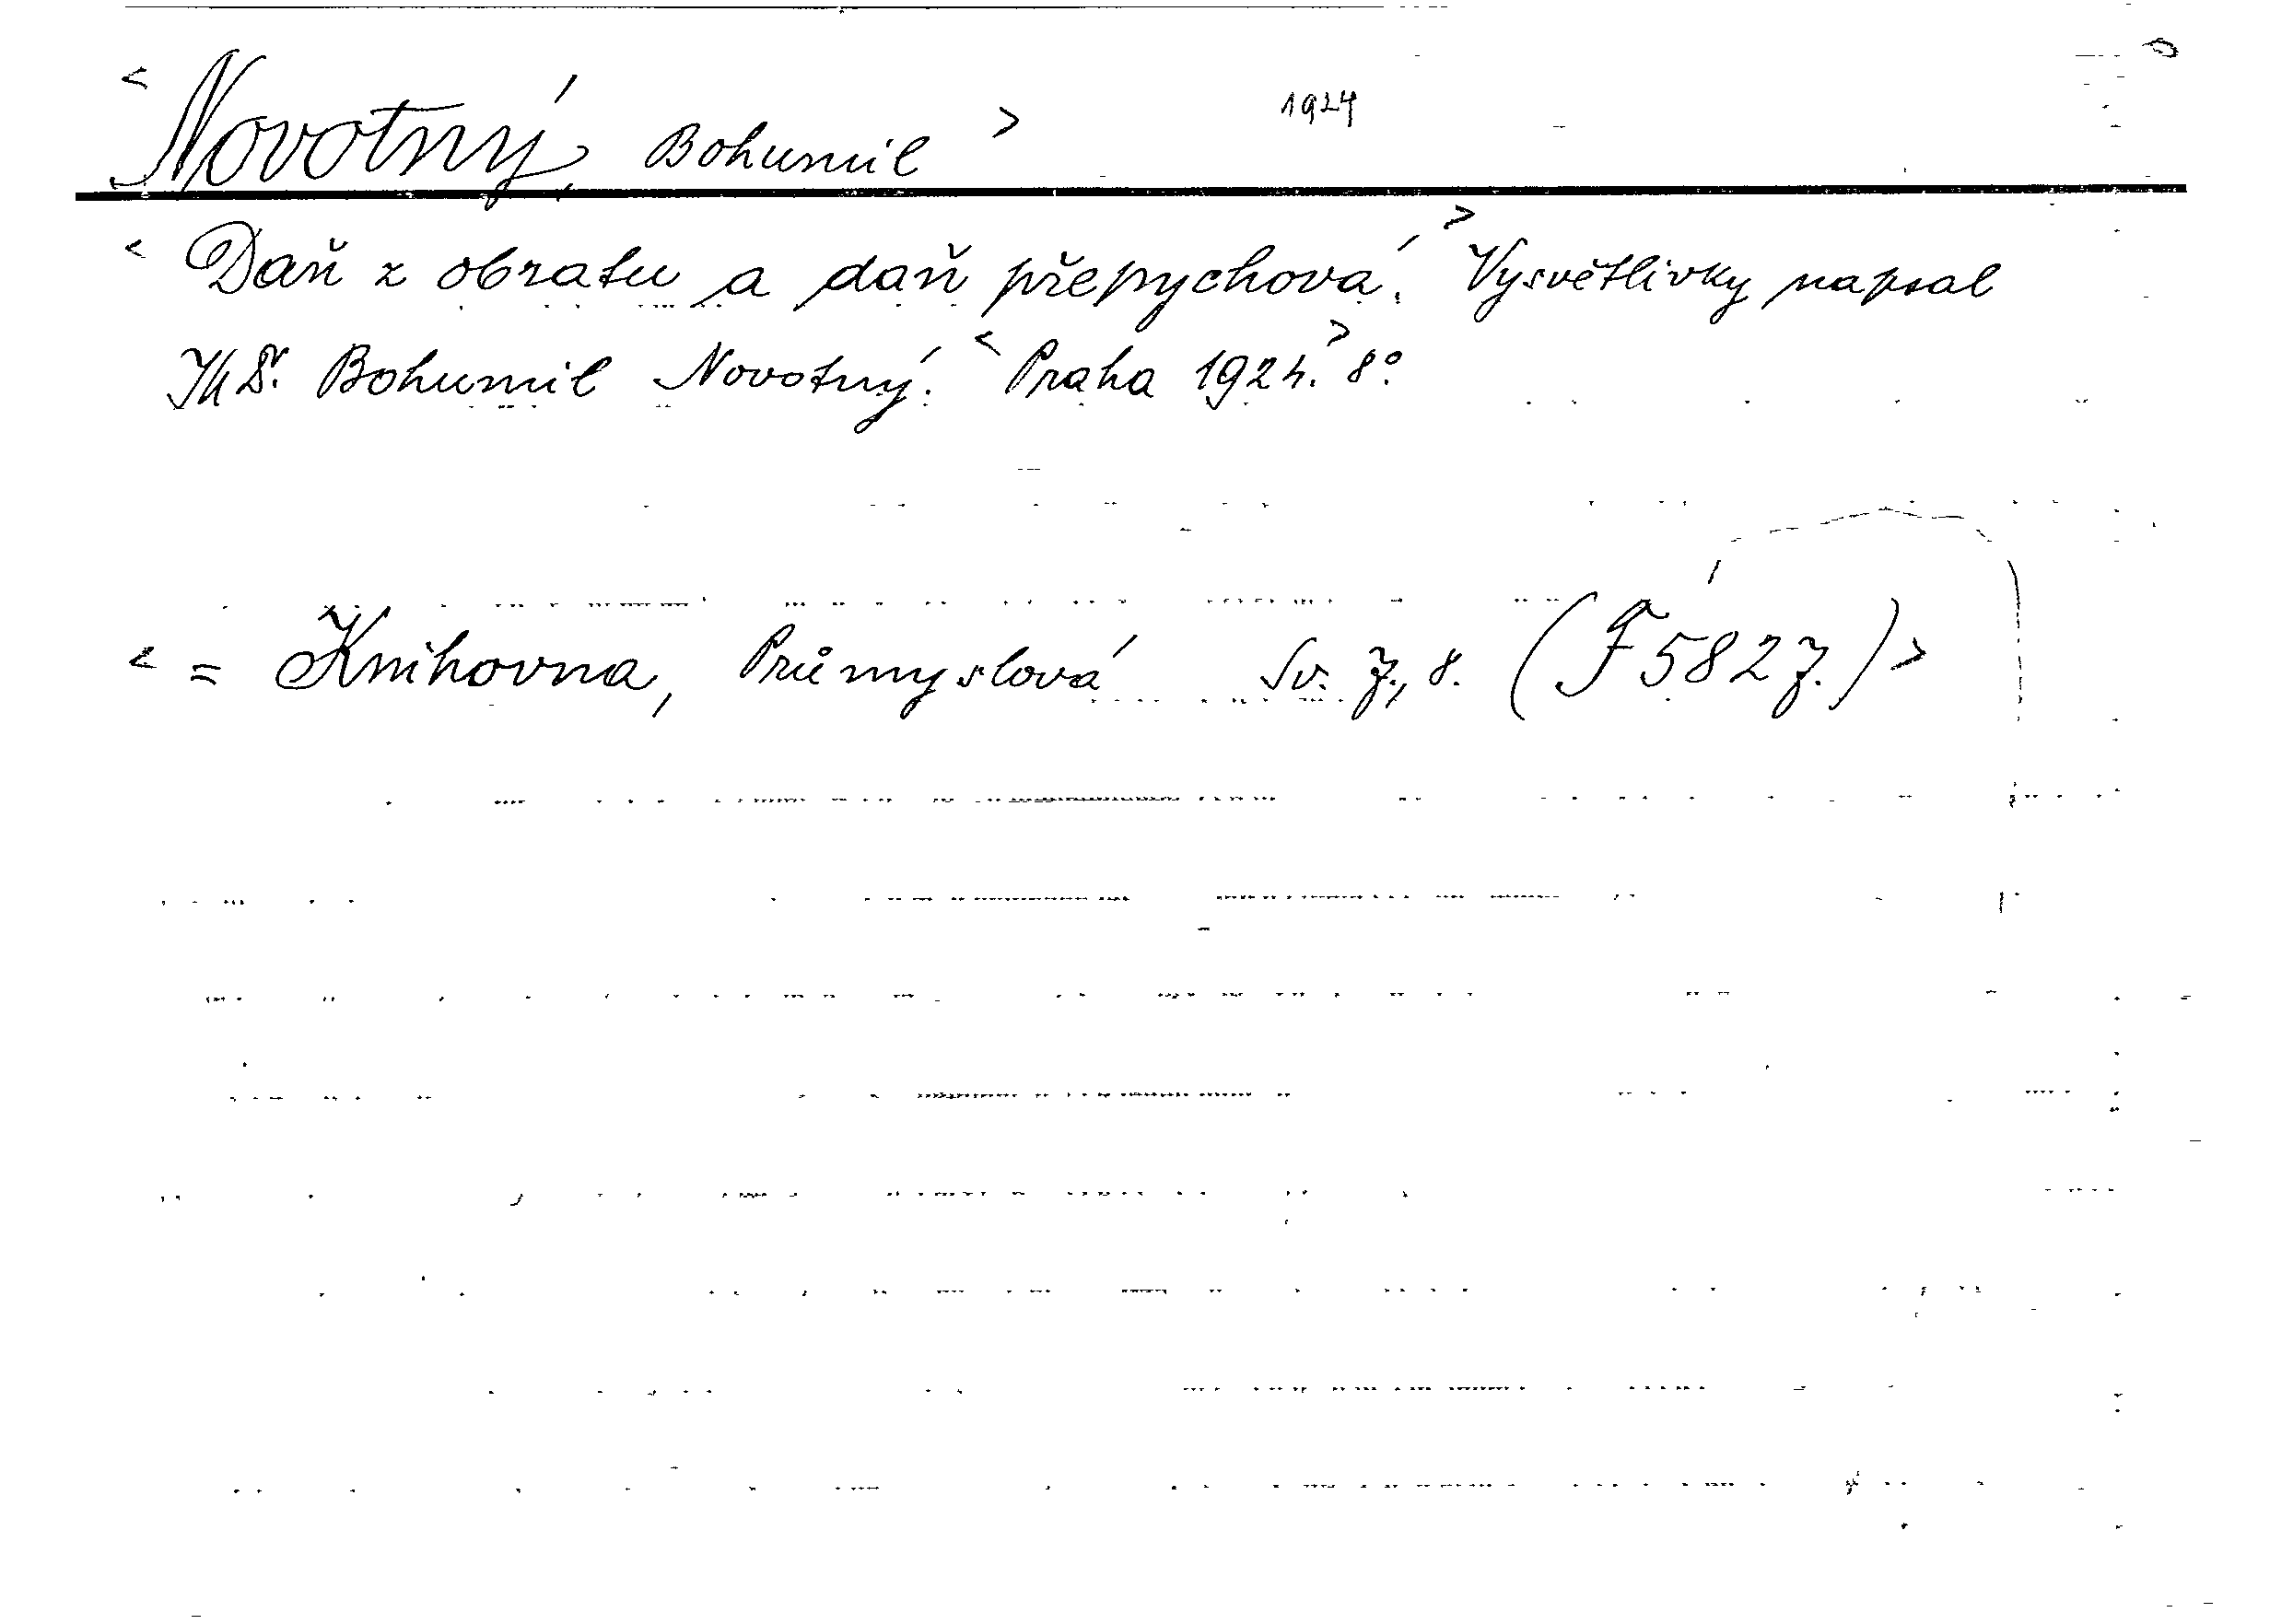 < Novotný, Bohumil > 1924
< Daň z obratu a daň přepychová. > Vysvětlivky napsal
JUDr. Bohumil Novotný. < Praha 1924. > 8°.
< = Knihovna, Průmyslová Sv. 7., 8. (F 5827.) >